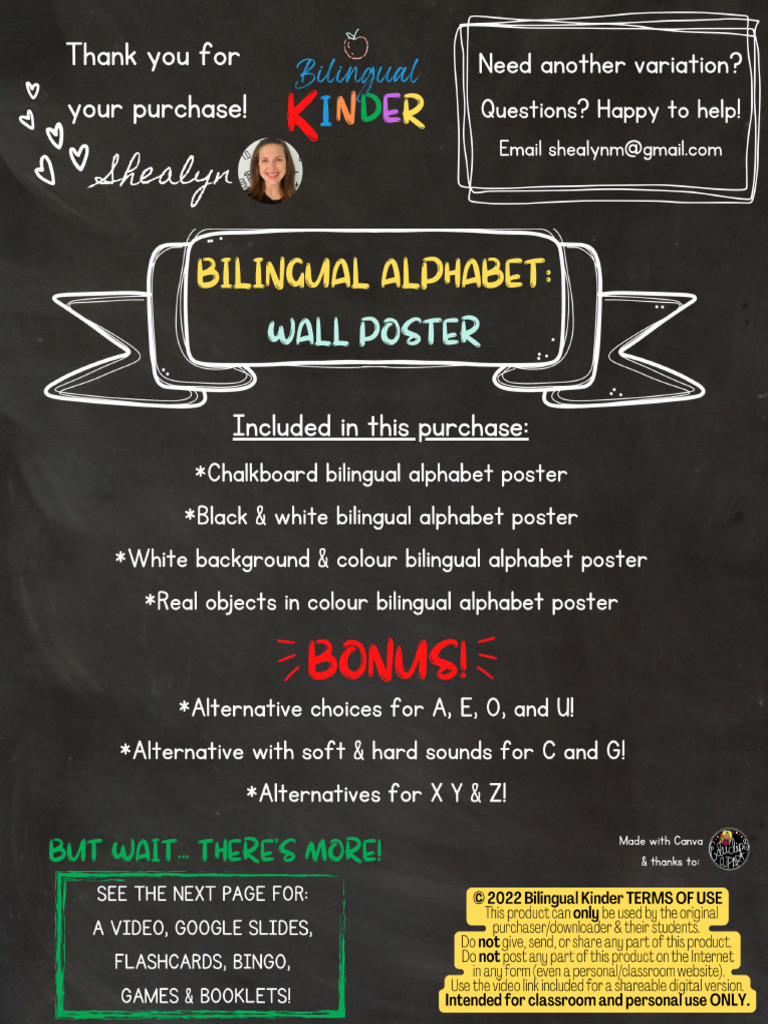 Thank you for
your purchase!
Shealyn
Bilingual
KINDER
Need another variation?
Questions? Happy to help!
Email shealynm@gmail.com
BILINGUAL ALPHABET:
WALL POSTER
Included in this purchase:
*Chalkboard bilingual alphabet poster
*Black & white bilingual alphabet poster
*White background & colour bilingual alphabet poster
*Real objects in colour bilingual alphabet poster
BONUS!
*Alternative choices for A, E, O, and U!
*Alternative with soft & hard sounds for C and G!
*Alternatives for X Y & Z!
BUT WAIT... THERE'S MORE!
SEE THE NEXT PAGE FOR:
A VIDEO, GOOGLE SLIDES,
FLASHCARDS, BINGO,
GAMES & BOOKLETS!
Made with Canva
& thanks to:
© 2022 Bilingual Kinder TERMS OF USE
This product can only be used by the original
purchaser/downloader & their students.
Do not give, send, or share any part of this product.
Do not post any part of this product on the Internet
in any form (even a personal/classroom website).
Use the video link included for a shareable digital version.
Intended for classroom and personal use ONLY.